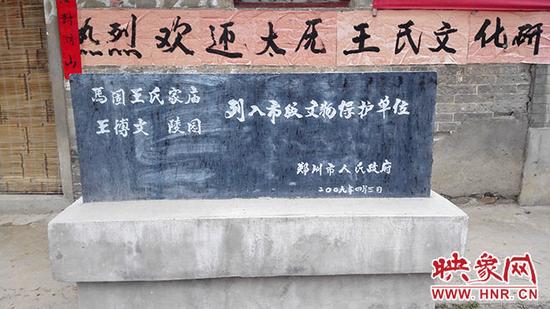 热烈欢迎太原王氏文化研
馬固王氏家庙
王博文 陵园
列入市级文物保护单位
郑州市人民政府
二〇〇九年四月三日
映象网
www.HNR.cn